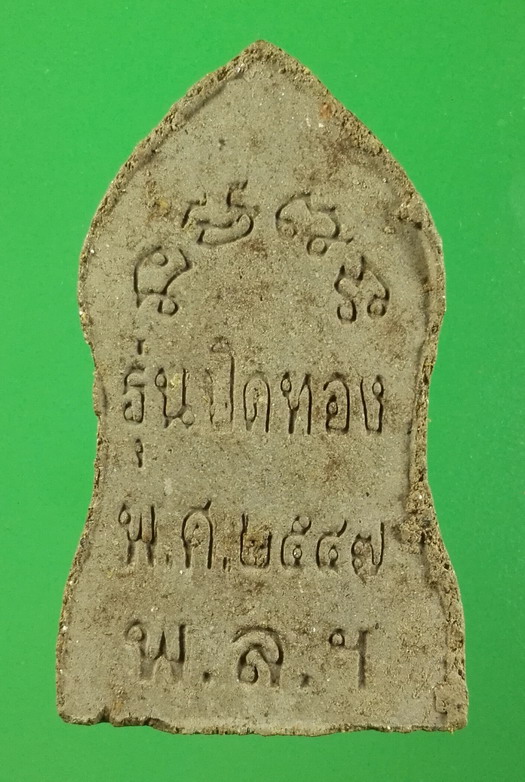 รุ่นปิดทอง
พ.ศ.๒๕๔๗
พ.ล.ฯ